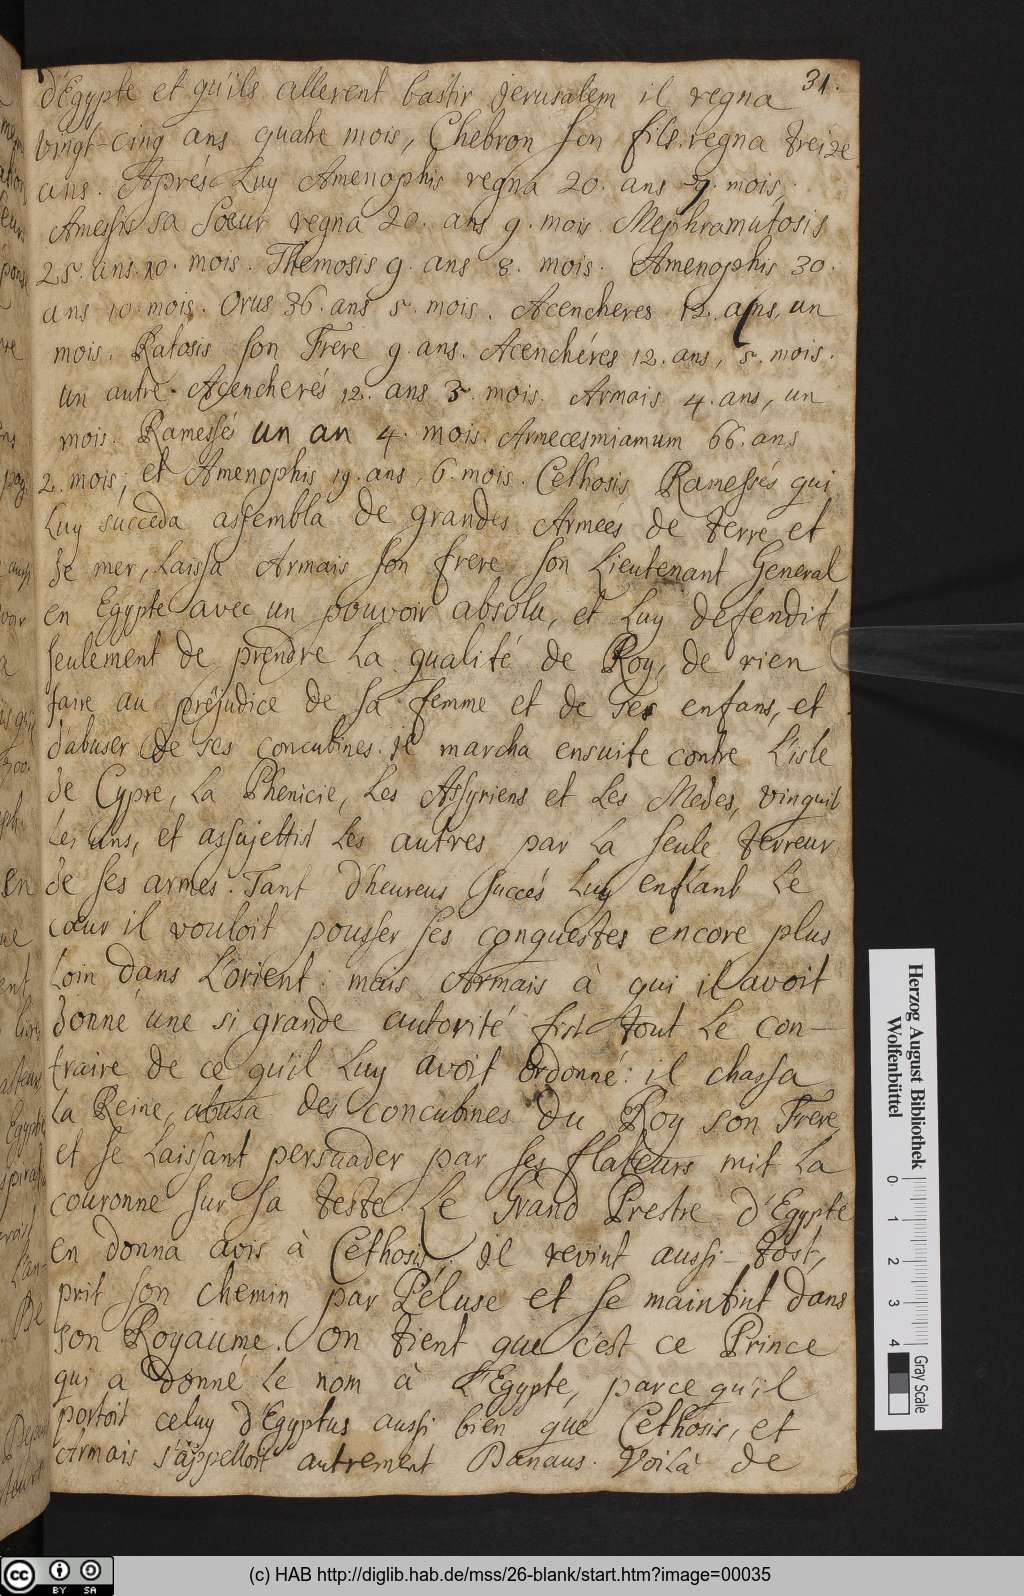 31.
d'Egypte et qu'ils allerent bastir Jerusalem il regna
vingt-cinq ans quatre mois, Chebron son fils regna treize
ans. Aprés Luy Amenophis regna 20. ans 7. mois,
Amessis sa Soeur regna 20. ans 9. mois Mephramutosis
25. ans 10. mois. Themosis 9. ans 8. mois. Amenophis 30.
ans 10 mois. Orus 36. ans 5. mois. Acencheres 12. ans, un
mois. Ratosis son Frere 9. ans. Acenchéres 12. ans, 5. mois.
un autre Acencherés 12. ans 3. mois. Armais 4. ans, un
mois. Ramessés un an 4. mois. Armecesmiamum 66. ans
2. mois, et Amenophis 19. ans, 6. mois. Cethosis Ramessés qui
Luy succeda assembla de grandes Armeés de terre et
de mer, Laissa Armais son frere son Lieutenant General
en Egypte avec un pouvoir absolu, et Luy defendit
seulement de prendre La qualité de Roy, de rien
faire au préjudice de sa femme et de ses enfans, et
d'abuser de ses concubines. Il marcha ensuite contre L'isle
de Cypre, La Phenicie, Les Assyriens et Les Medes, vinquit
Les uns, et assujettit Les autres par La seule terreur
de ses armes. Tant d'heureus succés Luy enflant Le
cœur il vouloit pousser ses conquestes encore plus
Loin dans L'orient: mais Armais à qui il avoit
donné une si grande autorité fist tout Le con-
traire de ce qu'il Luy avoit ordonné: il chassa
La Reine, abusa des concubines du Roy son Frere,
et se Laissant persuader par ses flateurs mit La
couronne sur sa teste. Le Grand Prestre d'Egypte
en donna avis à Cethosis, il revint aussi-tost,
prit son chemin par Péluse et se maintint dans
son Royaume. On tient que c'est ce Prince
qui a donné Le nom à L'Egypte, parce qu'il
portoit celuy d'Egyptus aussi bien que Cethosis, et
Armais s'appelloit autrement Danaus. Voilà de
Herzog August Bibliothek
Wolfenbüttel
0 1 2 3 4
Gray Scale
(c) HAB http://diglib.hab.de/mss/26-blank/start.htm?image=00035
CC BY SA